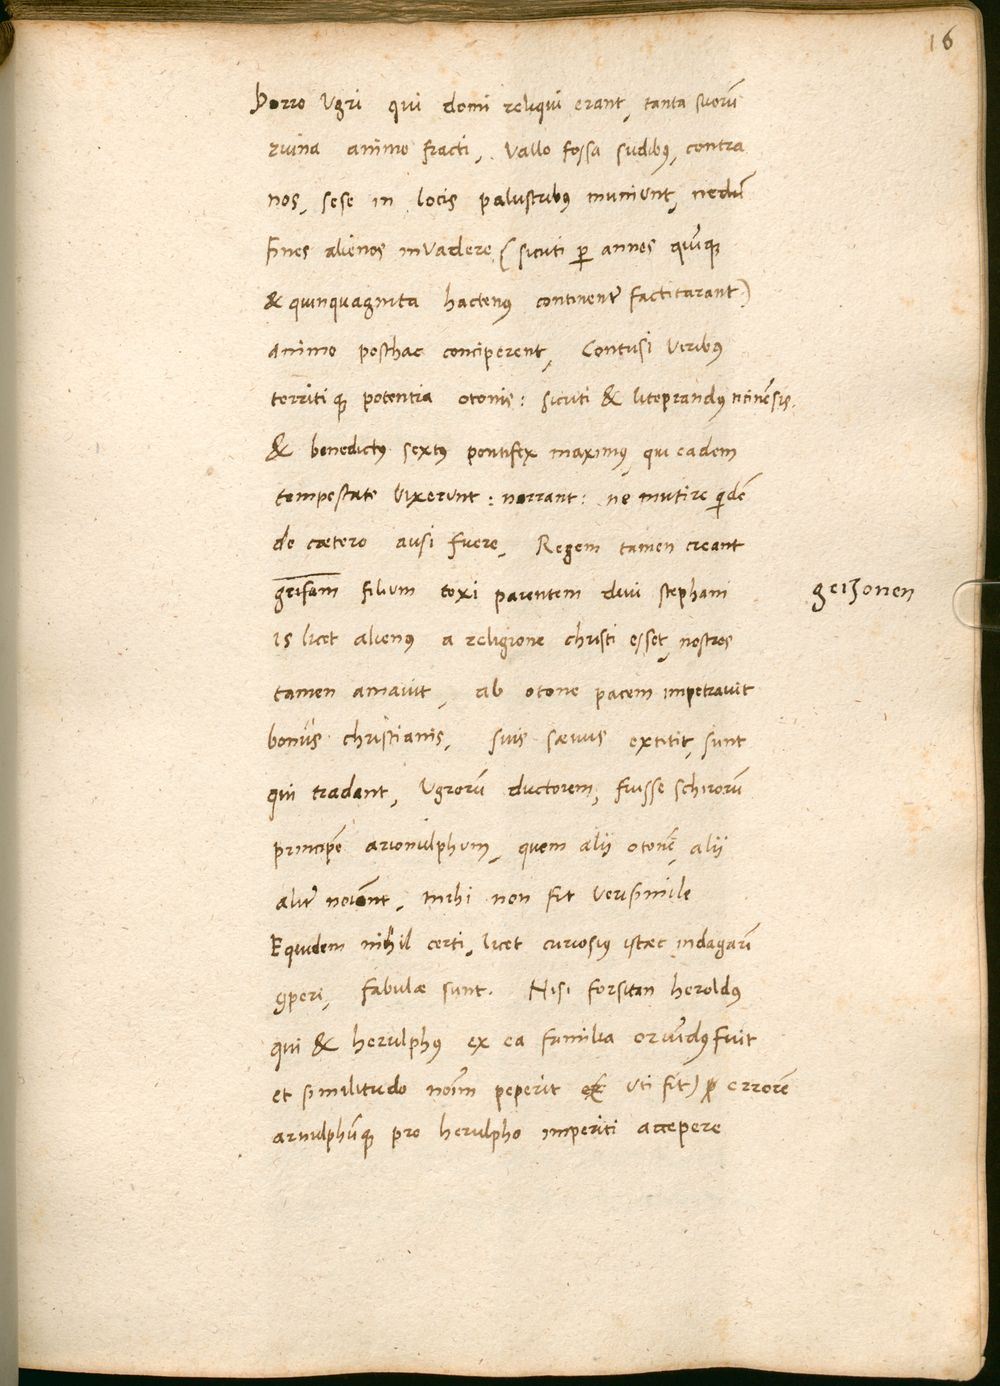 16
Porro Ugri qui domi reliqui erant, tanta suorū
ruina animo fracti, vallo fossa sudibꝰ, contra
nos, sese in locis palustribꝰ muniunt, nedū
fines alienos invadere (sicuti ꝑ annos quīqꝫ
& quinquaginta hactenꝰ continent᷑ factitarant)
animo posthac conciperent, Contusi viribꝰ
territi qꝫ potentia otonis: sicuti & liteprandꝰ titinēsis,
& benedictꝰ sextꝰ pontifex maximꝰ qui eadem
tempestate vixerunt: narrant: ne mutire qͥdē
de cætero ausi fuere, Regem tamen creant
greisam filium toxi parentem divi stephani geizonen
is licet alienꝰ a religione christi esset, nostros
tamen amavit, ab otone pacem impetravit
bonūs christianis, suis sævus extitit, sunt
qui tradant, Ugrorū ductorem, fuisse schirorū
principē arionulphum, quem alij otonē, alij
alit᷑ noīant, mihi non fit verisimile
Equidem nihil certi, licet curiosiꝰ istæc indagarī
ꝯperi, fabulæ sunt. Nisi forsitan heroldꝰ
qui & herulphꝰ ex ea familia oriūdꝰ fuit
et similitudo noīm peperit uti fit) ꝓ errorē
arnulphūqꝫ pro herulpho imperiti accepere